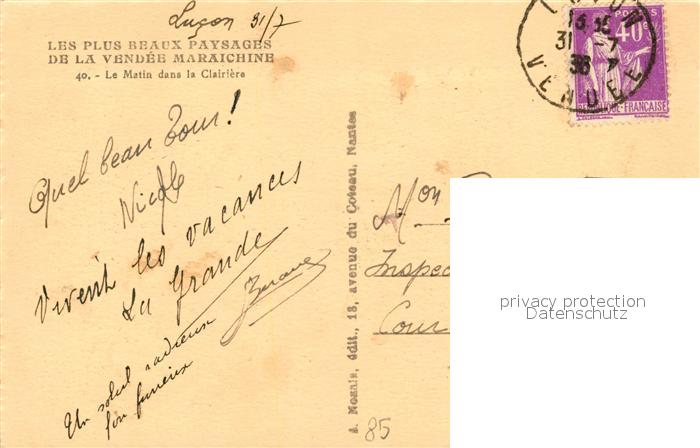 Luçon 31/7
LES PLUS BEAUX PAYSAGES
DE LA VENDÉE MARAICHINE
40. - Le Matin dans la Clairière
Quel beau Tour !
Nicole
Vivent les vacances
La Grande
Un soleil radieux
A. Nozais, édit., 18, avenue du Coteau, Nantes
VENDEE
13
31 -7
36
POSTES
40c
REPUBLIQUE FRANÇAISE
Mon
Inspec
Cour
85
privacy protection
Datenschutz